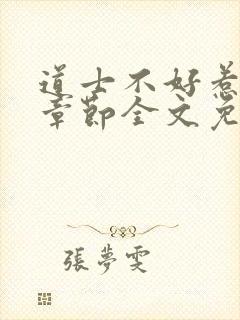 道士不好惹
章節全文免
張夢雯